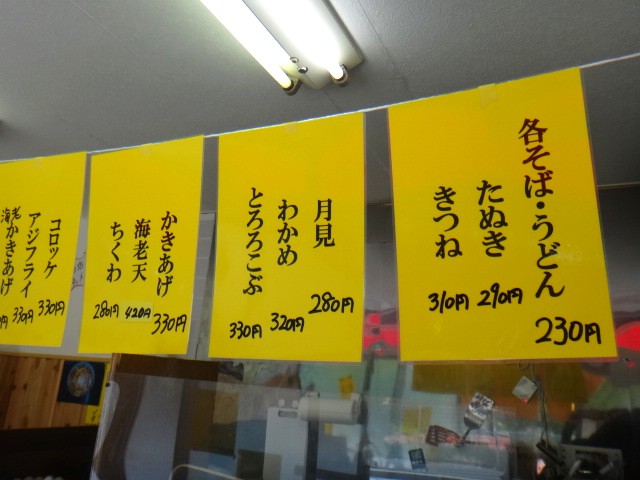 各そば・うどん 230円
たぬき 290円
きつね 310円
月見 280円
わかめ 320円
とろろこぶ 330円
かきあげ 330円
海老天 420円
ちくわ 280円
コロッケ 330円
アジフライ 330円
海老かきあげ